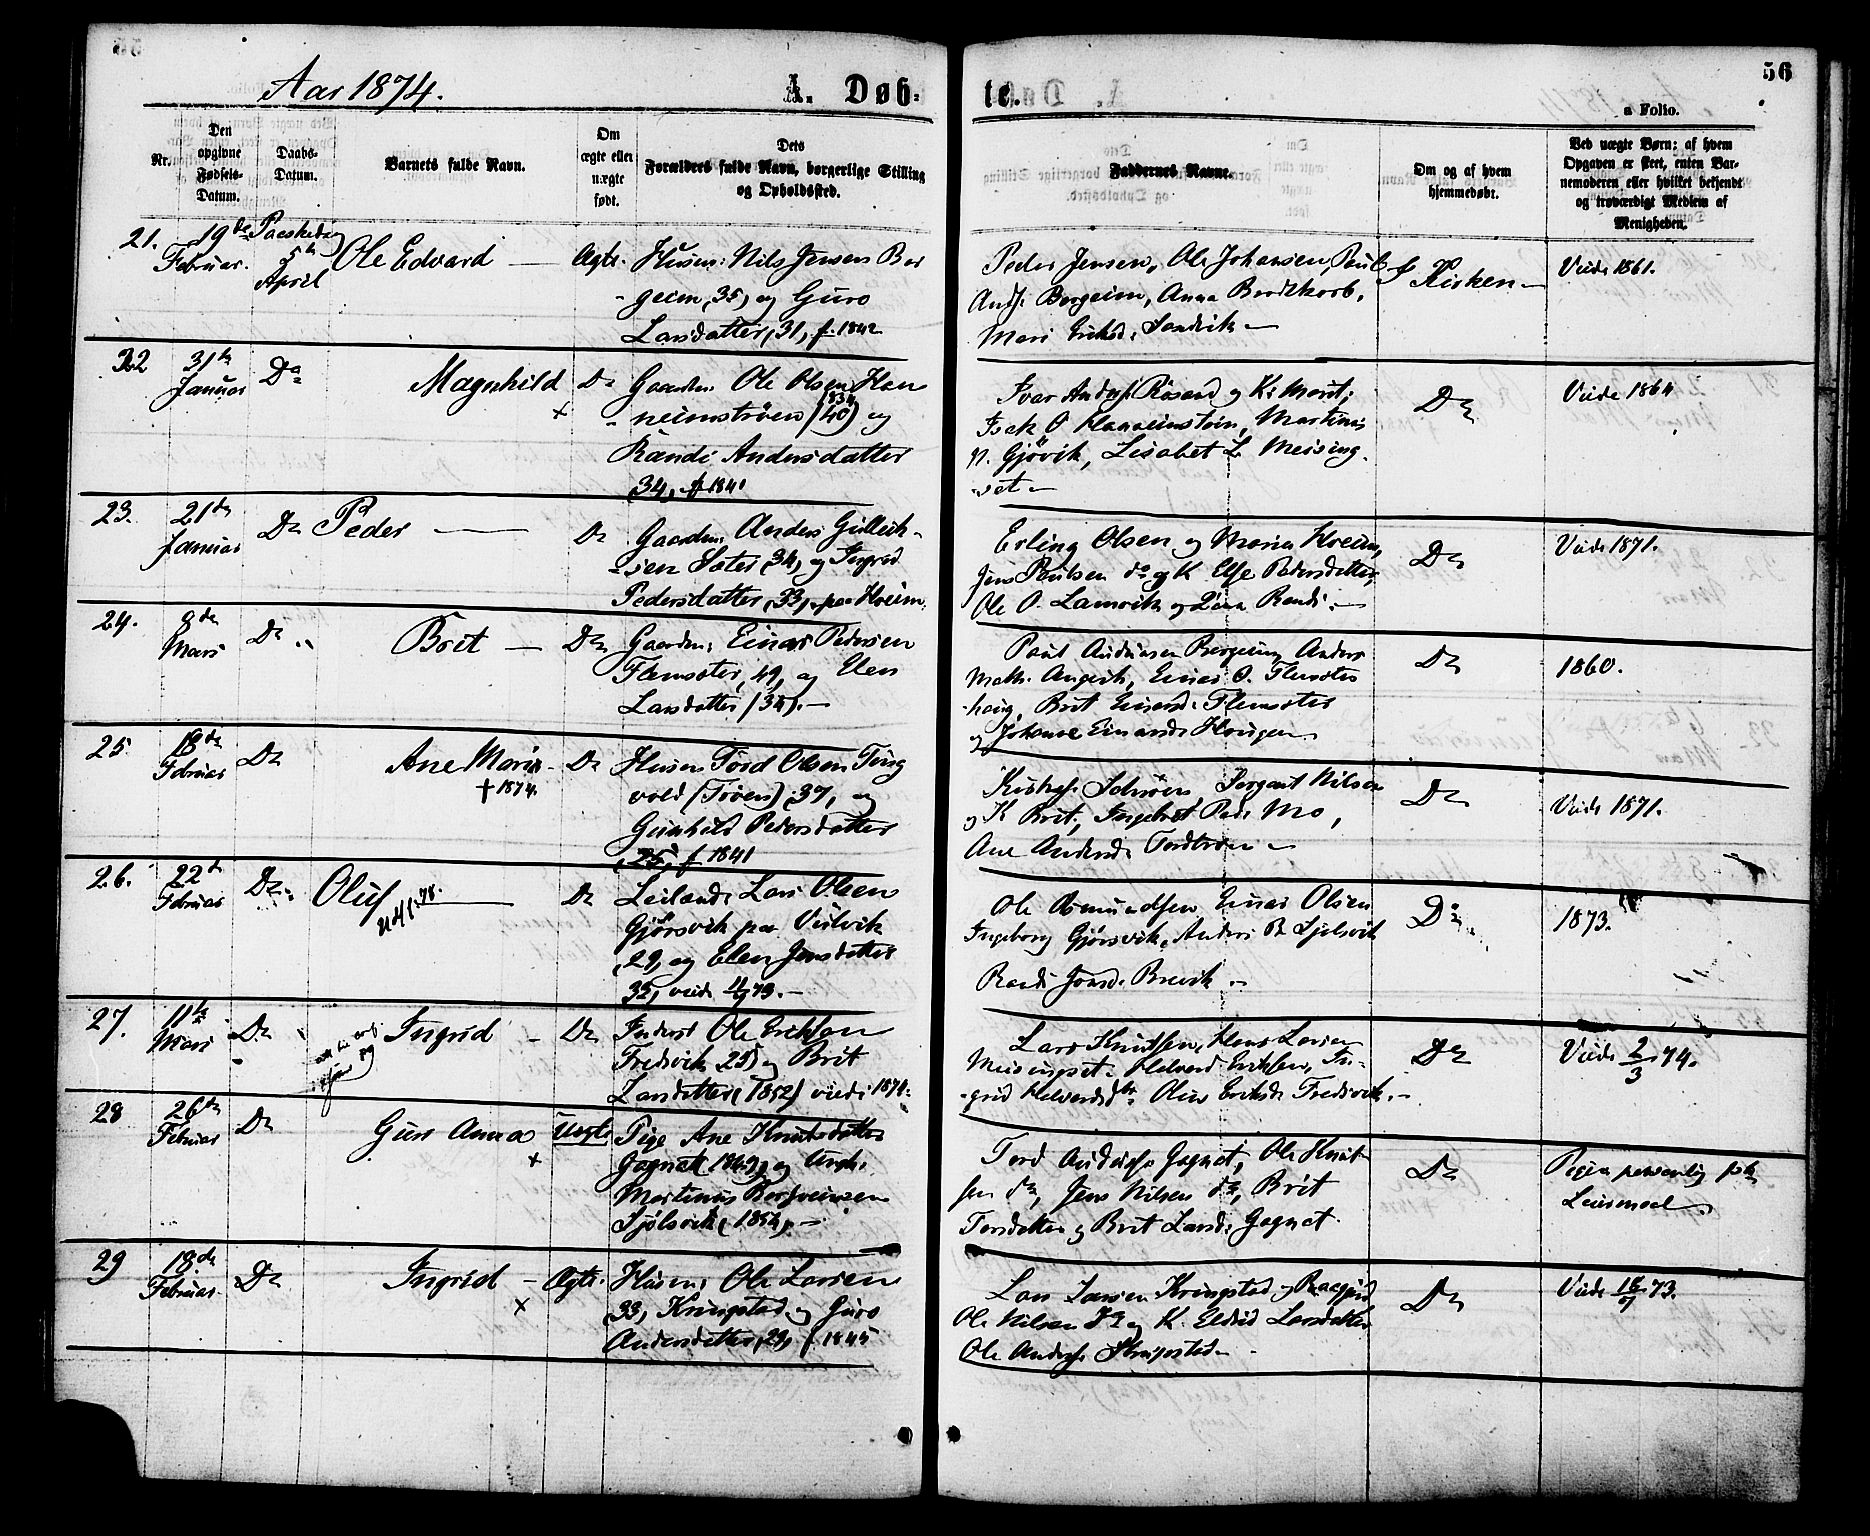 Aar 1874.
A. Døb-
te.
56
a Folio.
Nr.
Den opgivne Fødsels-Datum.
Daabs-Datum.
Barnets fulde Navn.
Om ægte eller uægte født.
Dets Forældres fulde Navn, borgerlige Stilling og Opholdssted.
Faddernes Navne.
Om og af hvem hjemmedøbt.
Ved uægte Børn: af hvem Opgaven er skeet, enten Barnemoderen eller hvilket bekjendt og troværdigt Medlem af Menigheden.
21.
19de Februar.
Paaskedag 5te April
Ole Edvard
Ægte.
Husm: Nils Jensen Bor
geim, 35, og Guro
Larsdatter, 31, f. 1842
Peder Jensen, Ole Johansen, Paul
Andr. Borgeim, Anna
Mari Eriksd. Sandvik
I Kirken
Viede 1861.
22
31te Januar
Do
Magnhild
+
Do
Gaardm: Ole Olsen Han
neimstrøen (40) og
1834
Randi Andersdatter
34, f 1841
Ivar Anders. Røsand og K: Marit;
Isak O Hanneimstrøen, Martinus
N. Gjøvik, Lisabet L. Meising
set
Do
Viede 1864
23.
21de Januar
Do
Peder
Do
Gaardm: Anders Gulleik
sen Sæter, 34, og Ingrid
Pedersdatter, 33, paa Hoeim
Erling Olsen og Maria Hoeim,
Jens Paulsen do og K Else Pedersdatter,
Ole O. Lamvik og Randi
Do
Viede 1871.
24.
8de Mars
Do
Brit
Do
Gaardm: Einar Pedersen
Flemsæter, 49, og Elen
Larsdatter (34).
Paul Andreasen Borgeim, Anders
Math. Angvik, Einar O. Flemsæter
haug, Brit Einarsd: Flemsæter
og Johanne Einarsd: Hougen
Do
1860.
25.
18de Februar
Do
Ane Maria
+ 1874.
Do
Husm Tord Olsen Ting
vold (Trøen), 37, og
Gunhild Pedersdatter
25, f 1841
Sergeant Nilsen
og K Brit, Ingebret Peds. Mo,
Ane Andersd:
Do
Viede 1871.
26.
22de Februar
Do
Oluf
Do
Leilænd: Lars Olsen
Gjørsvik paa Vulvik
29, og Elen Jensdatter
35, viede 73.
Ole Asmundsen, Einar Olsen
Ingeborg Gjørsvik, Anders B. Sjølsvik
Randi Jonsd: Brevik
Do
1873.
27.
11te Mars
Do
Ingrid
Do
Inderst Ole Eriksen
Fredsvik 25) og Brit
Larsdatter (1852) viede 1874.
Lars Knudsen, Hans Larsen
Meisingset. Halvard Eriksen, In
grid Halvardsdtr. Eriksd: Fredsvik.
Do
Viede 2/3 74.
28
26de Februar
Do
Guri Anna
+
Uægte
Pige Ane Knutsdatter
Gagnat (1849) og Ungk.
Martinus Bersveinsen
Sjølsvik (1854).
Tord Anders. Gagnat, Ole Knut
sen do, Jens Nilsen do, Brit
Torsdatter og Brit Larsd: Gagnat.
Do
Pigen personlig
29
18de Februar
Do
Ingrid
+
Ægte.
Husm: Ole Larsen
33, Kringstad og Guro
Andersdatter, 29, f 1845
Lars Larsen Kringstad og Ragnhild
Ole Nilsen do og K. Eldrid Larsdatter
Ole Anders. Kringstad
Do
Viede 18/7 73.